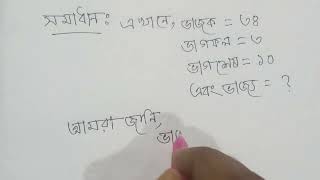 সমাধান: এখানে, ভাজক = ৩৪
ভাগফল = ৩
ভাগশেষ = ১০
এবং ভাজ্য = ?
আমরা জানি,
ভা